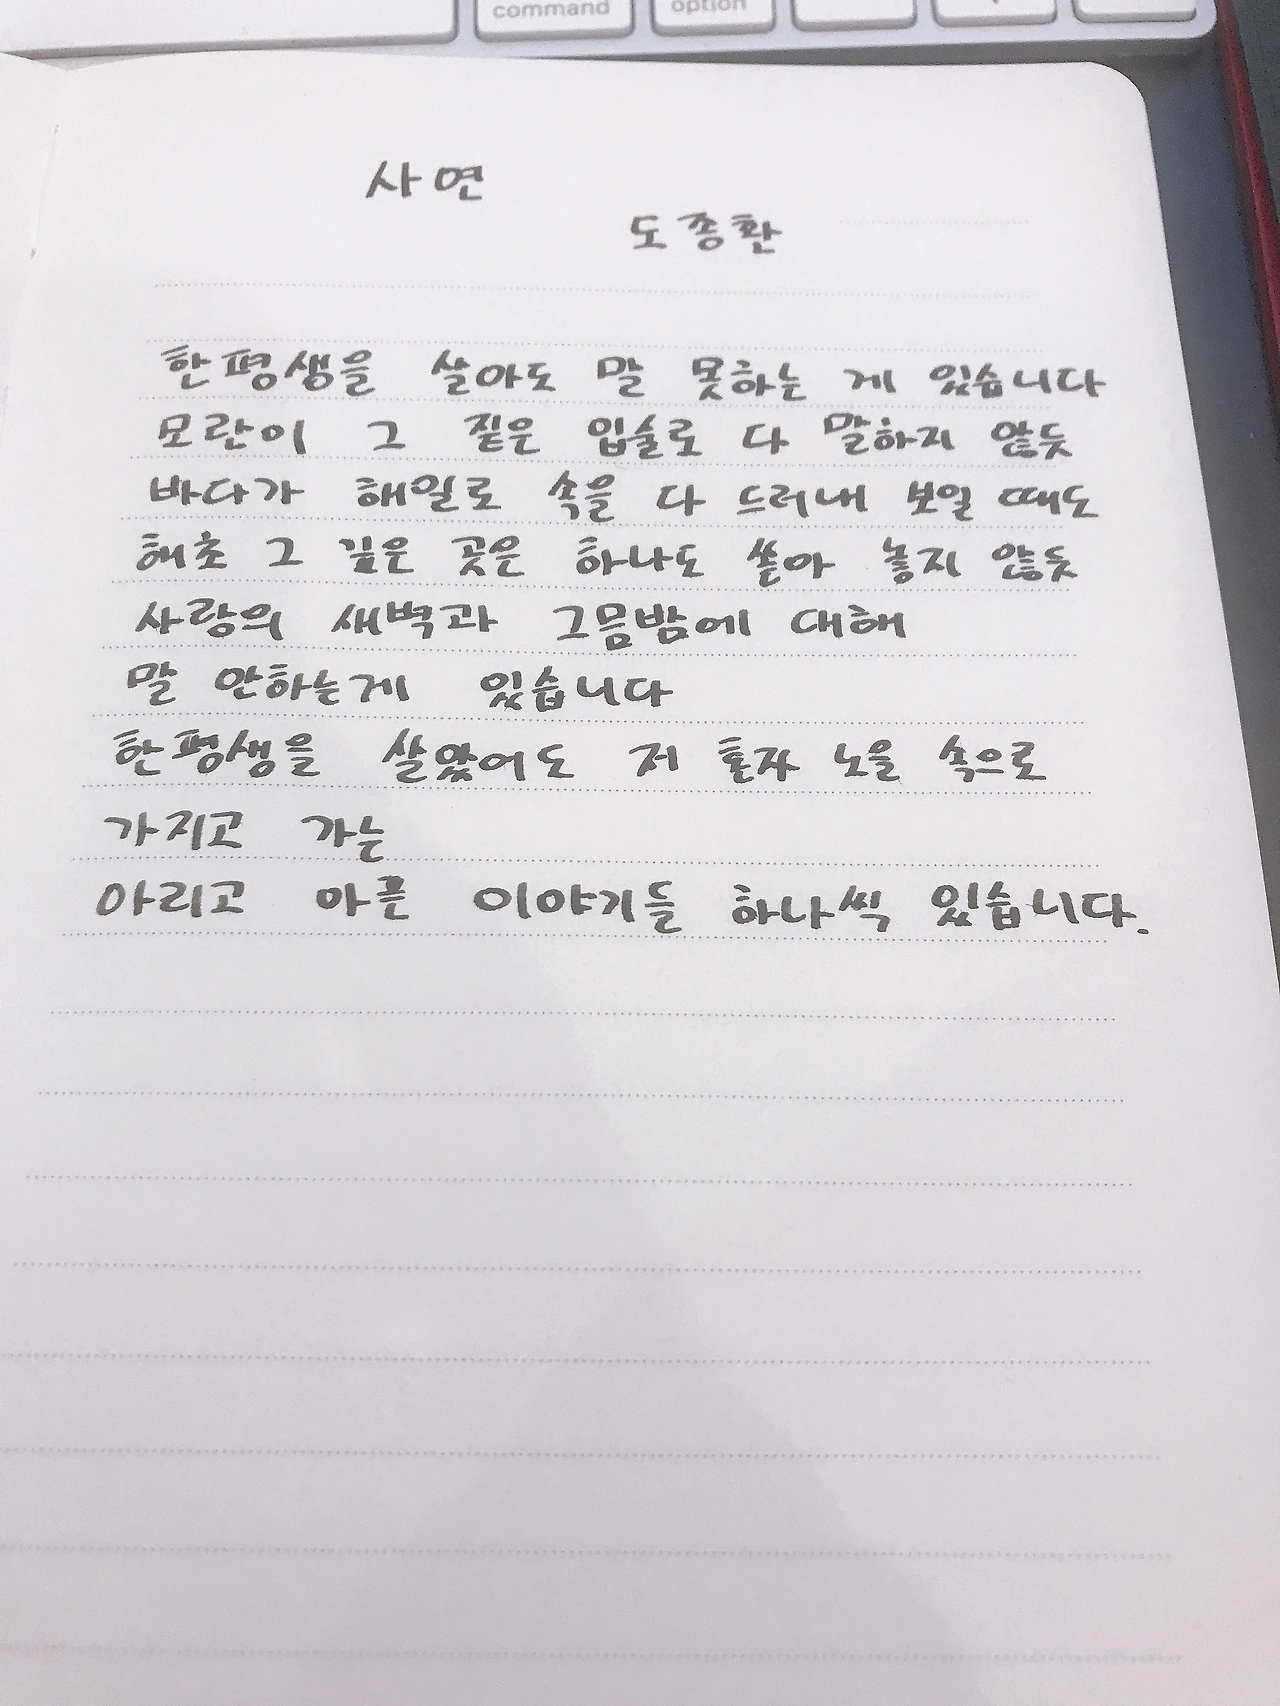 command option
사연
도종환
한평생을 살아도 말 못하는 게 있습니다
모란이 그 짙은 입술로 다 말하지 않듯
바다가 해일로 속을 다 드러내 보일 때도
해초 그 깊은 곳은 하나도 쏟아 놓지 않듯
사랑의 새벽과 그믐밤에 대해
말 안하는게 있습니다
한평생을 살았어도 저 혼자 노을 속으로
가지고 가는
아리고 아픈 이야기들 하나씩 있습니다.